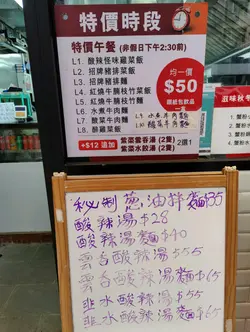 特價時段
特價午餐 (非假日下午2:30前)
L1. 酸辣怪味雞菜飯
L2. 招牌豬排菜飯
L3. 招牌豬排麵
L4. 紅燒牛腩枝竹菜飯
L5. 紅燒牛腩枝竹麵
L6. 水煮牛肉麵
L7. 酸菜牛肉麵
L8. 醉雞菜飯
均一價
$50
跟紙包飲品
一客
+$12 追加
紫菜雲吞湯 (2隻)
紫菜水餃湯 (2隻)
2選1
滋味秋
秘制葱油拌麵$35
酸辣湯$28
酸辣湯麵$40
雲吞酸辣湯$55
雲吞酸辣湯麵$65
韮水酸辣湯$55
韮水酸辣湯麵$65